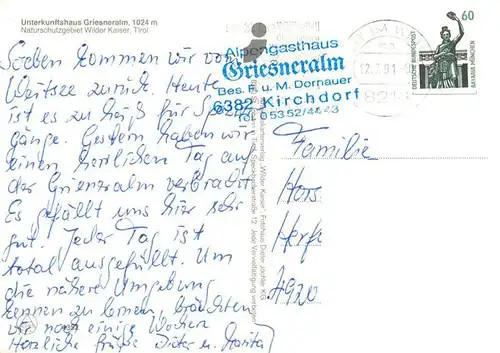 Unterkunftshaus Griesneralm, 1024 m
Naturschutzgebiet Wilder Kaiser, Tirol
Soeben kommen wir vom
Weitsee zurück. Heute
ist es zu heiß für Spazier
gänge. Gestern haben wir
einen herrlichen Tag auf
der Grienzralm verbracht
Es gefällt uns hier sehr
gut. Jeder Tag ist
total ausgefüllt. Um
die nähere Umgebung
kennen zu lernen, bräuchten
wir noch einige Wochen
Herzliche Grüße Dieter u. Marita
Alpengasthaus
Griesneralm
Bes. F. u. M. Dornauer
6382 Kirchdorf
Tel. 05352/4443
60
DEUTSCHE BUNDESPOST
BAVARIA MÜNCHEN
Familie
Hors
Herfe
4920